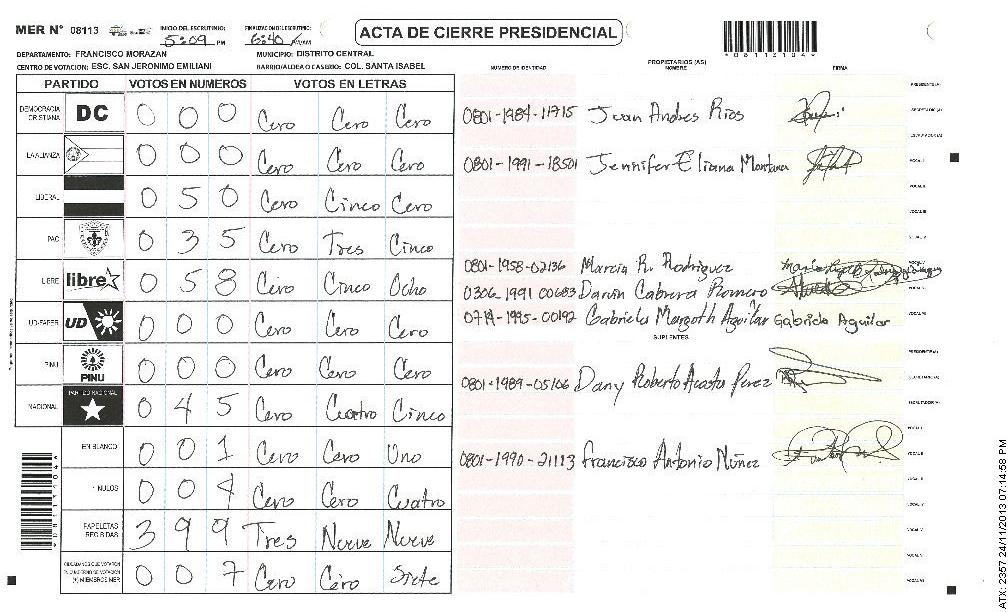 MER Nº 08113 INICIO DEL ESCRUTINIO: 5:09 PM FINALIZACION DEL ESCRUTINIO: 6:40 PM/AM
ACTA DE CIERRE PRESIDENCIAL
DEPARTAMENTO: FRANCISCO MORAZAN MUNICIPIO: DISTRITO CENTRAL
CENTRO DE VOTACION: ESC. SAN JERONIMO EMILIANI BARRIO/ALDEA O CASERIO: COL. SANTA ISABEL
PARTIDO VOTOS EN NUMEROS VOTOS EN LETRAS
DEMOCRACIA CRISTIANA DC 0 0 0 Cero Cero Cero
LA ALIANZA 0 0 0 Cero Cero Cero
LIBERAL 0 5 0 Cero Cinco Cero
PAC 0 3 5 Cero Tres Cinco
LIBRE libre 0 5 8 Cero Cinco Ocho
UD-FAPER UD 0 0 0 Cero Cero Cero
PINU PINU 0 0 0 Cero Cero Cero
NACIONAL PARTIDO NACIONAL 0 4 5 Cero Cuatro Cinco
EN BLANCO 0 0 1 Cero Cero Uno
NULOS 0 0 4 Cero Cero Cuatro
PAPELETAS RECIBIDAS 3 9 9 Tres Nueve Nueve
CIUDADANOS QUE VOTARON
(+) MIEMBROS MER 0 0 7 Cero Cero Siete
PROPIETARIOS (AS)
NUMERO DE IDENTIDAD NOMBRE FIRMA
PRESIDENTE(A)
0801-1984-11715 Juan Andres Rios
SECRETARIO(A)
ESCRUTADOR(A)
0801-1991-18501 Jennifer Eliana Montana
VOCAL I
VOCAL II
VOCAL III
VOCAL IV
0801-1958-02136 Marcia R. Rodriguez
VOCAL V
0306-1991 00683 Danon Cabrera Romero
0714-1995-00192 Gabriela Margoth Aguilar Gabriela Aguilar
SUPLENTES
PRESIDENTE(A)
0801-1989-05106 Dany Roberto Acosta Perez
SECRETARIO(A)
ESCRUTADOR(A)
VOCAL I
0801-1990-21113 Francisco Antonio Núñez
VOCAL II
VOCAL III
VOCAL IV
VOCAL V
*08113104*
*08113104*
ATX: 2357 24/11/2013 07:14:58 PM